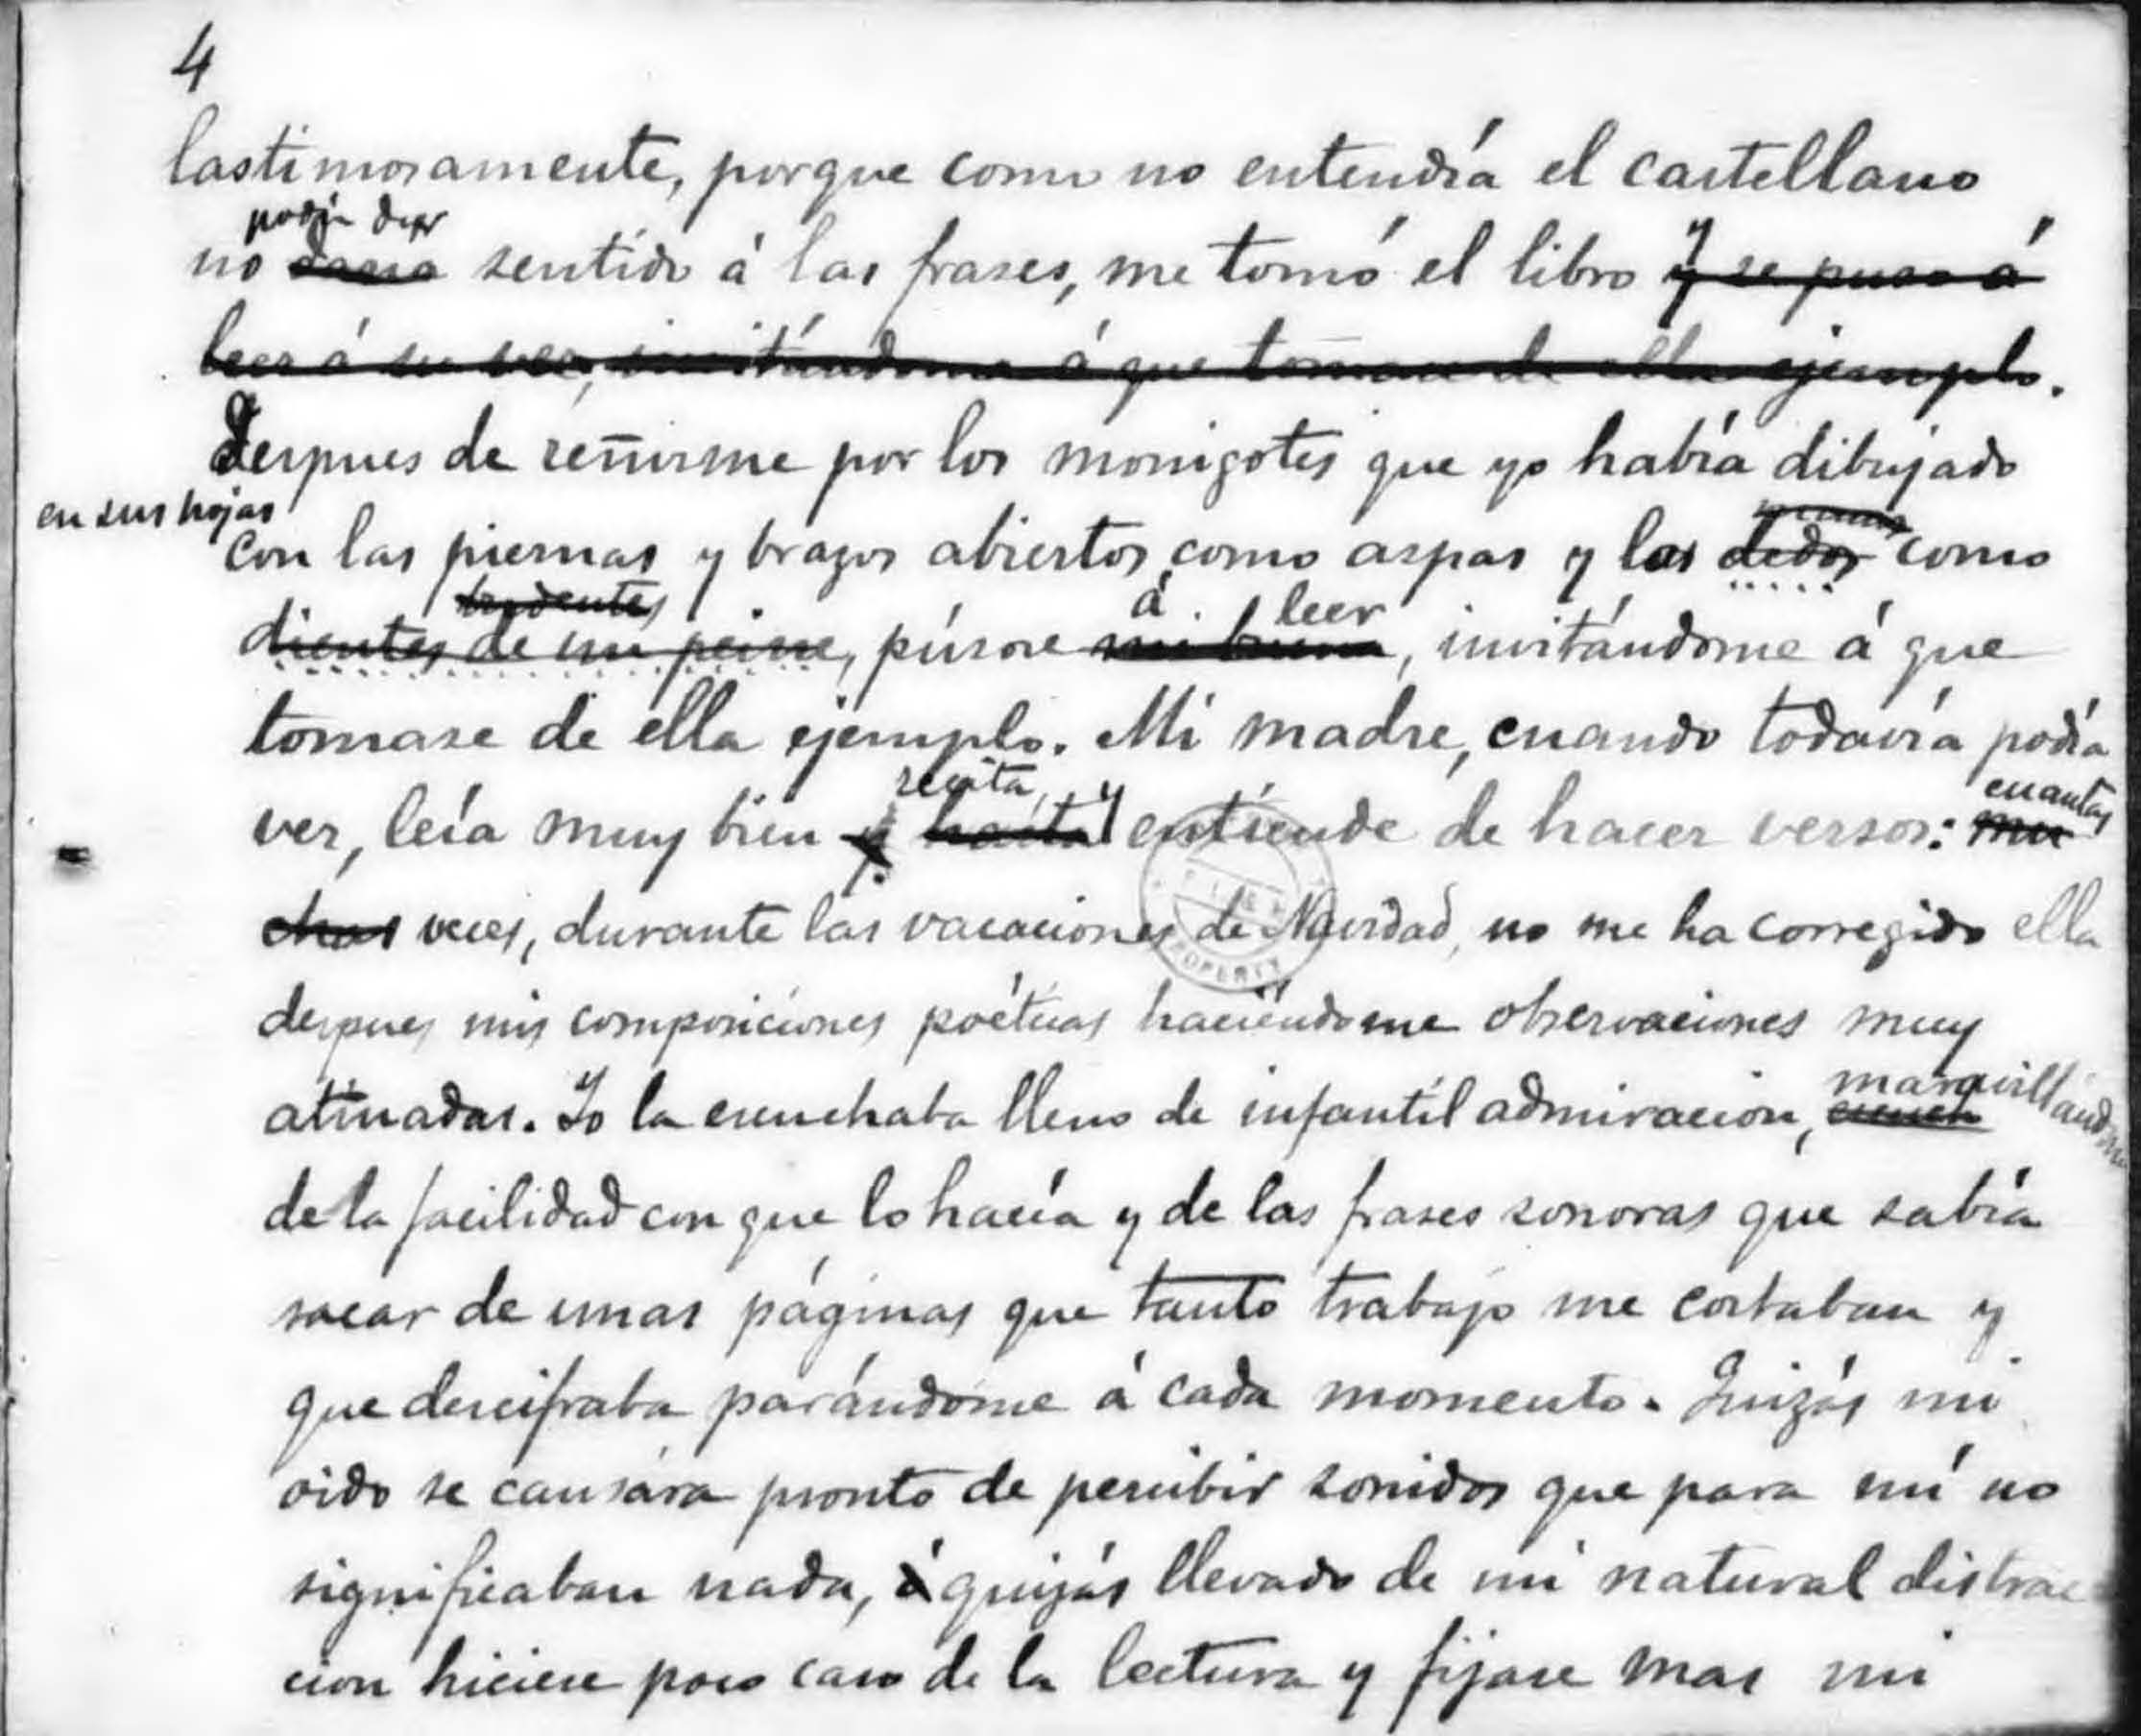 4
lastimosamente, porque como no entendía el castellano
podía dar
no daría sentido á las frases, me tomó el libro y se puso á
leer á su vez, invitándome á que tomase de ella ejemplo.
Despues de reñirme por los monigotes que yo había dibujado
en sus hojas
con las piernas y brazos abiertos como aspas y los dedos como
tridentes á leer
dientes de un peine, púsose, invitándome á que
tomase de ella ejemplo. Mi madre, cuando todavía podía
recita, y cuantas
ver, leía muy bien y hasta entiende de hacer versos: mu
chas veces, durante las vacaciones de Navidad, no me ha corregido ella
despues mis composiciones poéticas haciéndome observaciones muy
maravillándome
atinadas. Yo la escuchaba lleno de infantil admiracion,
de la facilidad con que lo hacía y de las frases sonoras que sabía
sacar de unas páginas que tanto trabajo me costaban y
que descifraba parándome á cada momento. Quizás mi
oido se cansára pronto de percibir sonidos que para mí no
significaban nada, quizás llevado de mi natural distrac
cion hiciese poco caso de la lectura y fijase mas mi
PROPERTY